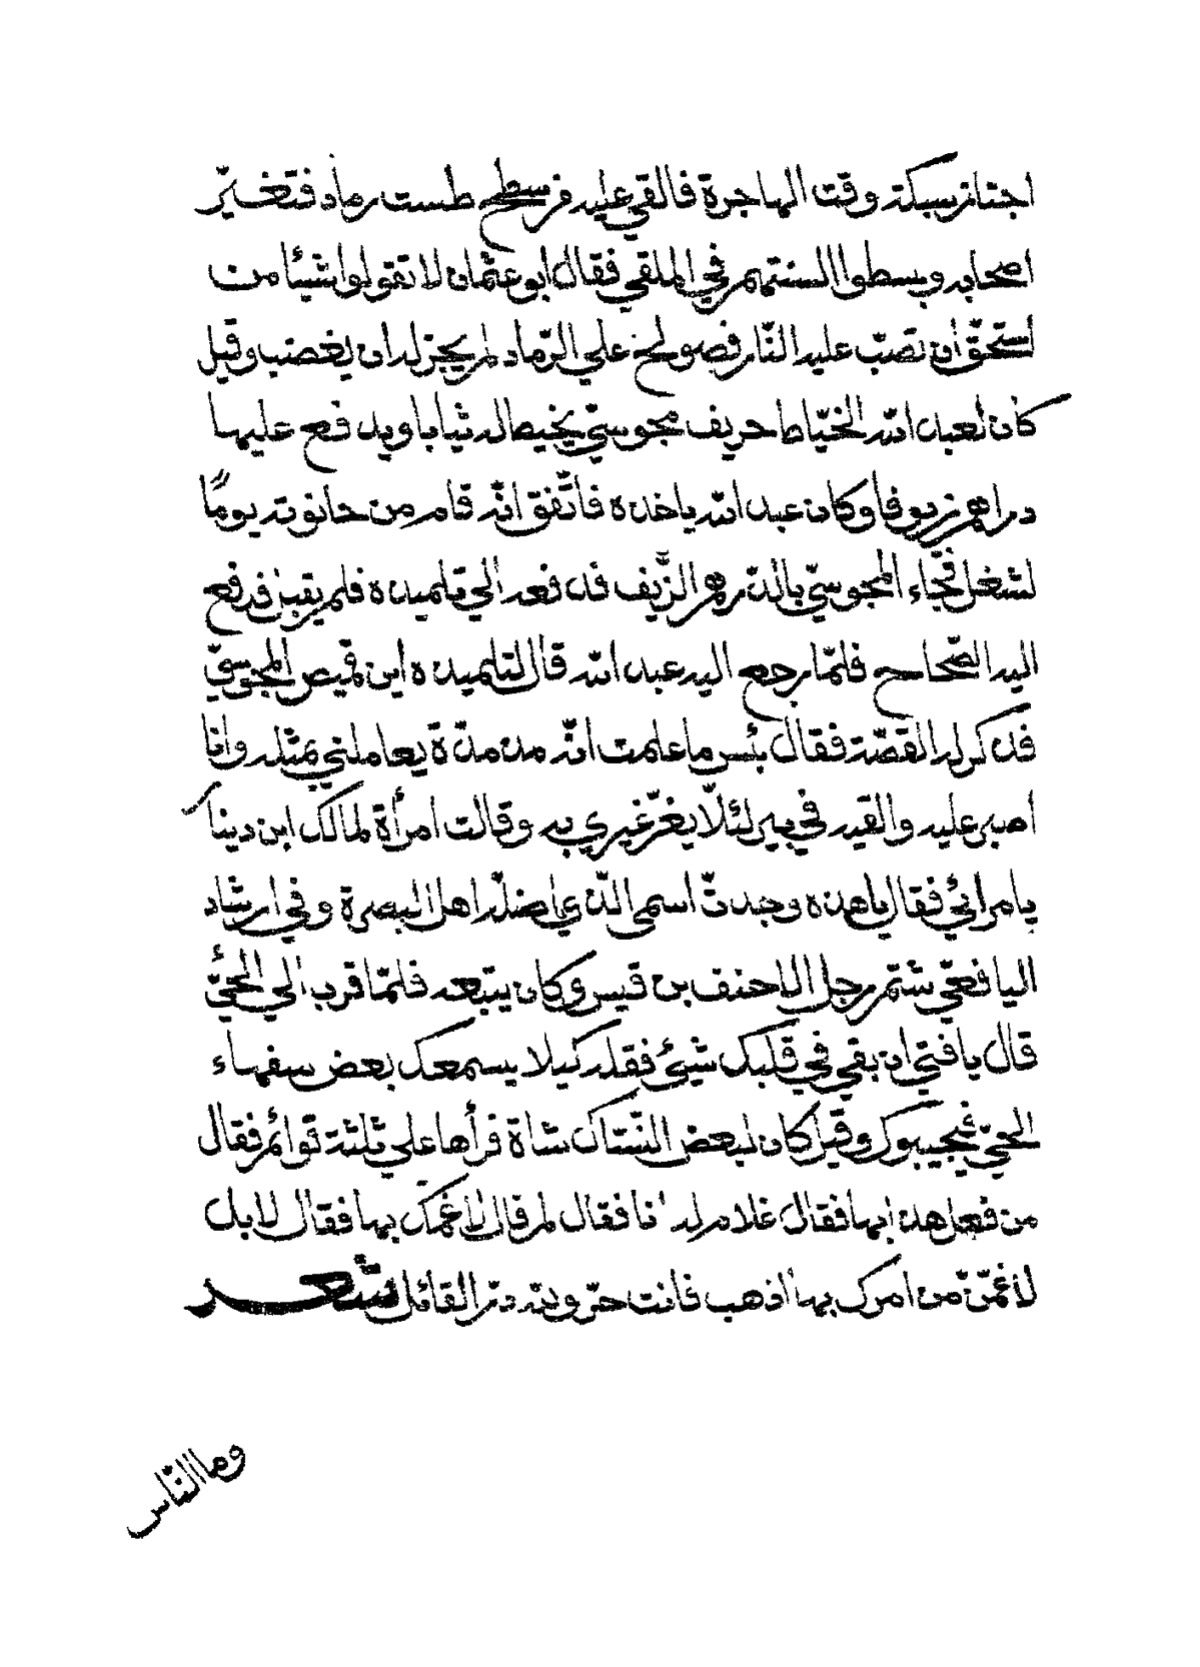 اجتاز بسكة وقت الهاجرة فالقي عليه من سطح طست رماد فتغيّر
اصحابه وبسطوا السنتهم في الملقي فقال ابو عثمان لا تقولوا شيئا من
استحقّ أن تصبّ عليه النّار فصولح علي الرّماد لم يجز له ان يغضب وقيل
كان لعبد الله الخيّاط حريف مجوسيّ يخيط له ثيابا ويدفع عليها
دراهم زيوفا وكان عبد الله ياخذه فاتّفق انّه قام من حانوته يومًا
لشغل فجّاء المجوسيّ بالدّرهم الزّيف فدفعه الي تلميذه فلم يقبل فدفع
اليه الصّحاح فلمّا رجع اليه عبد الله قال لتلميذه اين قميص المجوسيّ
فذكر له القصّة فقال بئس ما علمت انّه من مدّة يعاملني بمثله وانا
اصبر عليه والقيه في بير لئلّا يغرّ غيري به وقالت امرأة لمالك ابن دينار
يا مرائي فقال يا هذه وجدتّ اسمي الّذي اضلّه اهل البصرة وفي ارشاد
اليافعي شتم رجل الاحنف بن قيس وكان يتبعه فلمّا قرب الي الحيّ
قال يا فتي ان بقي في قلبك شيئ فقله كيلا يسمعك بعض سفهاء
الحيّ فيجيبوك وقيل كان لبعض النّسّاك شاة فرأها علي ثلثة قوائم فقال
من فعل هذا بها فقال غلام له انا فقال لم قال لاغمّك بها فقال لا بل
لاغمّنّ من امرك بها اذهب فانت حرّ ولله درّ القائل شعر
وما النّاس